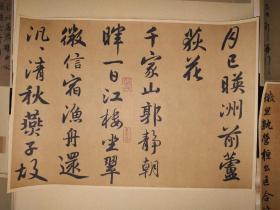 月已暎洲前蘆
荻花
千家山郭靜朝
暉一日江樓坐翠
微信宿漁舟還
汎〻清秋燕子故